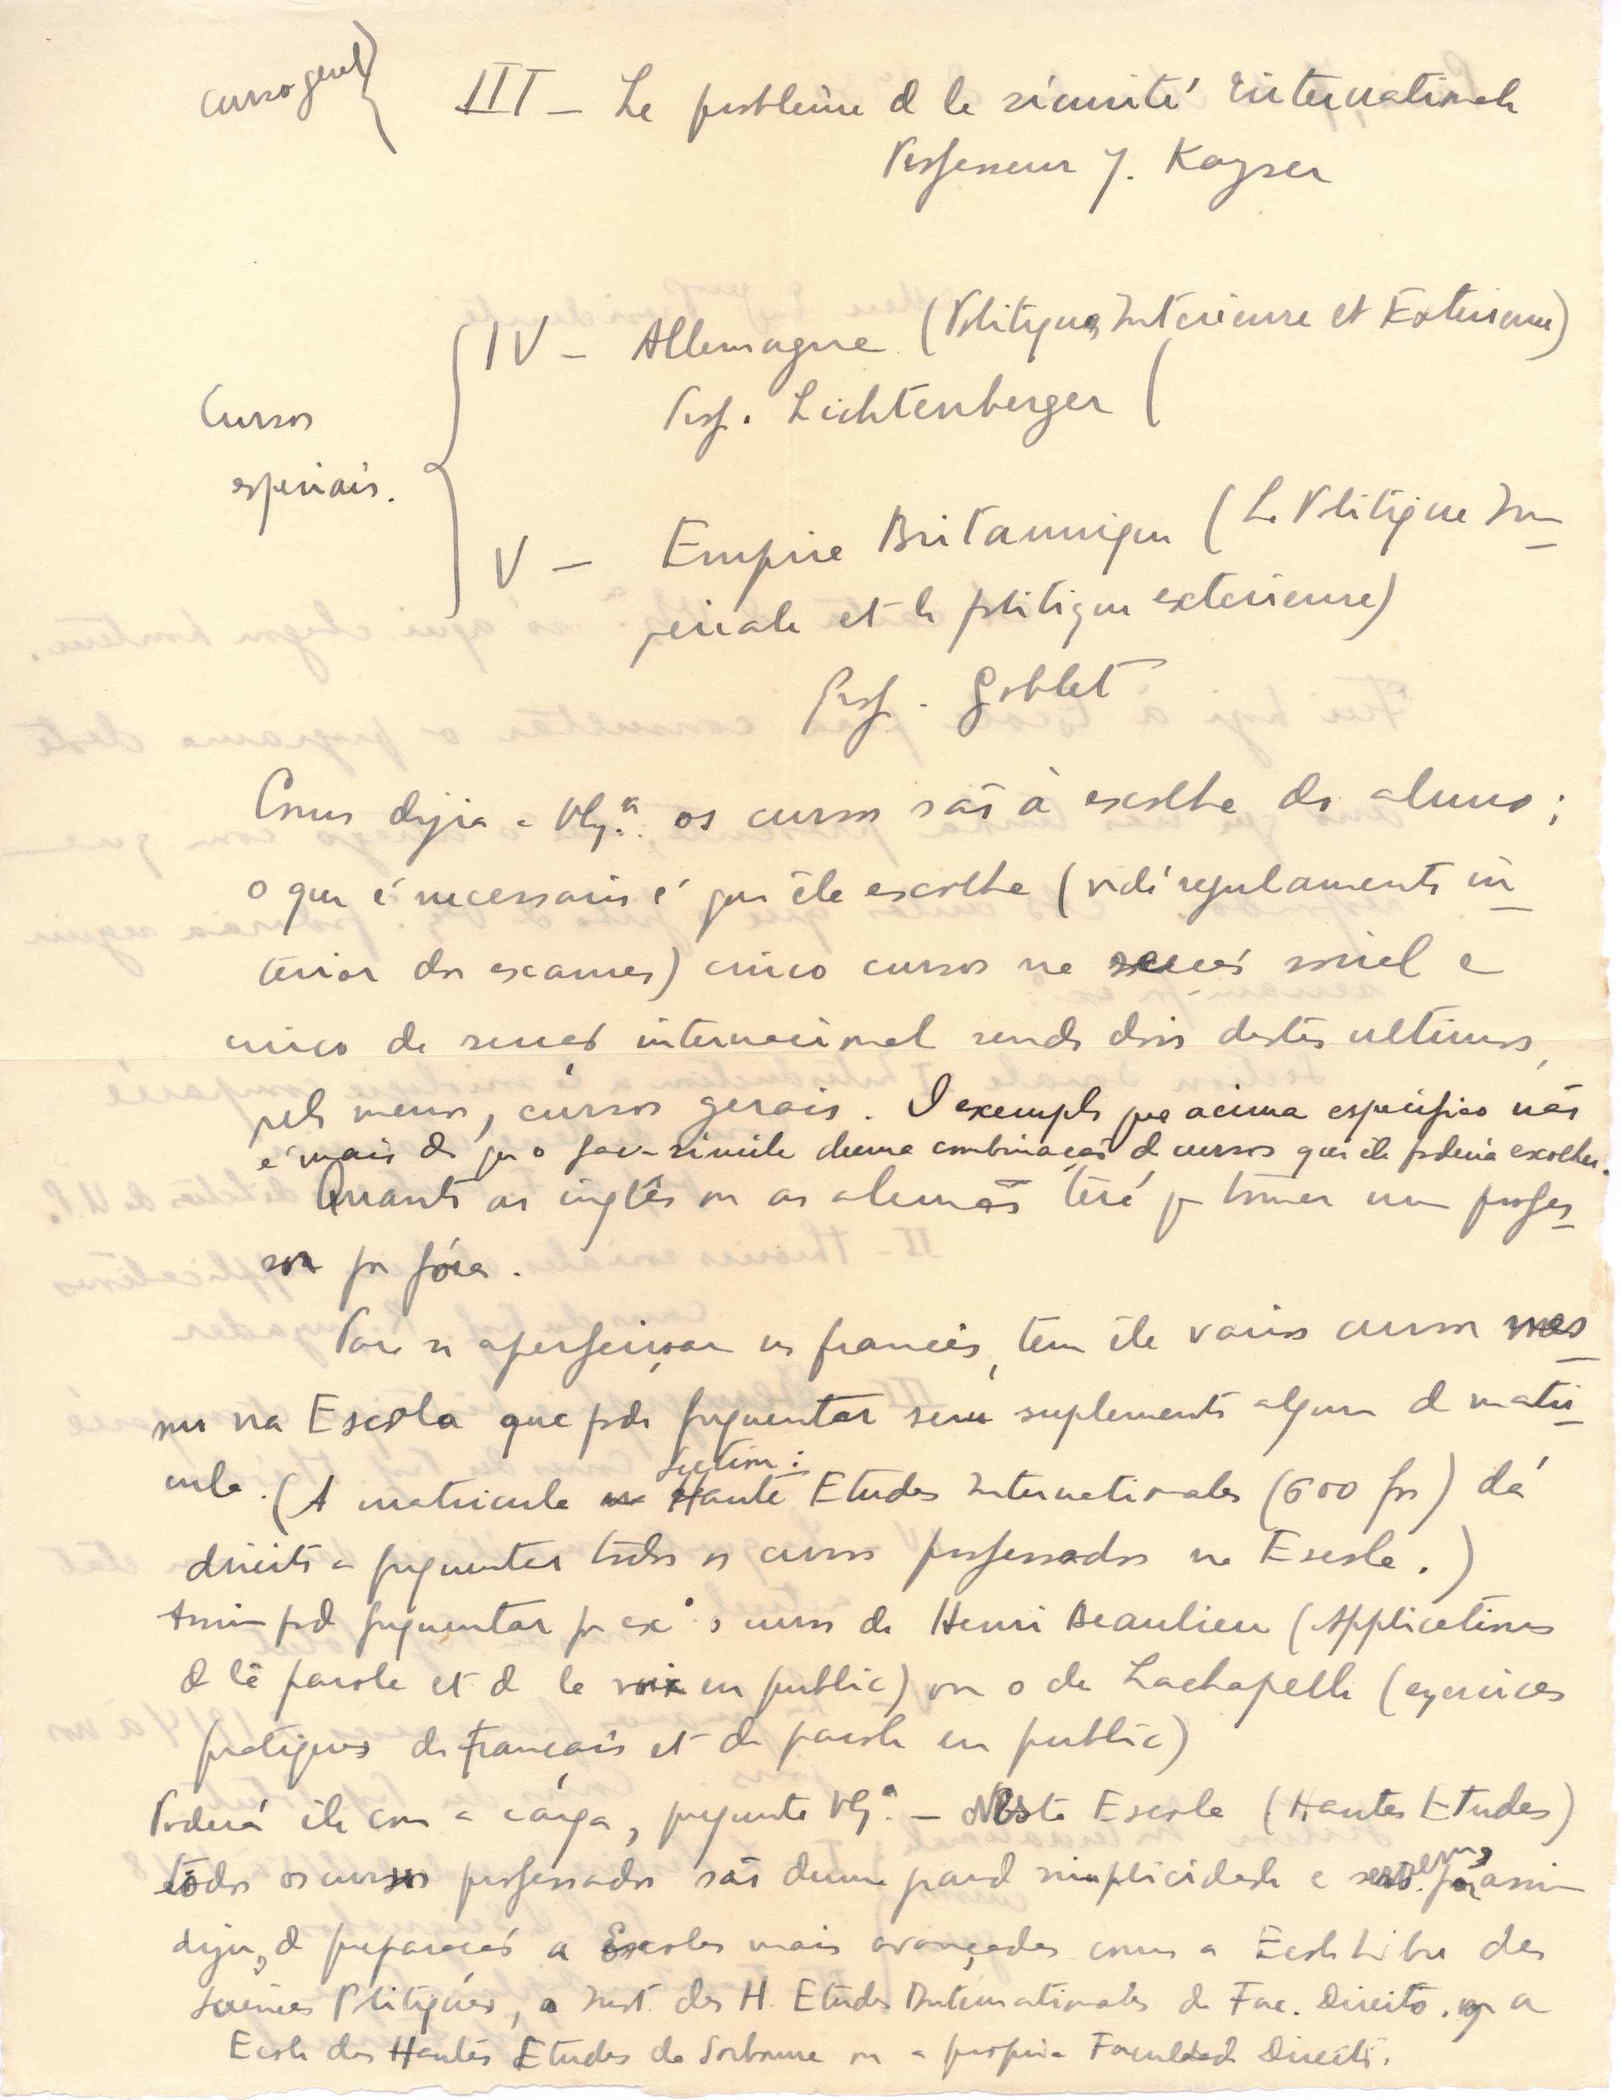 Curso geral } III – Le problème de la sécurité internationale
Professeur J. Kayser
IV – Allemagne (Politiques Interieure et Exterieure)
Prof. Lichtenberger (
Cursos
especiais.
V – Empire Britannique (La Politique Im-
periale et la politique exterieure)
Prof. Goblet
Como dizia a V. os cursos são à escolha do aluno;
o que é necessario é que êle escolha (vidé regulamento in-
terior dos exames) cinco cursos na secção social e
cinco da secção internacional sendo dois destes ultimos,
pelo menos, cursos gerais. O exemplo que acima especifico não
é mais do que o fac-simile duma combinação de cursos que êle poderia escolher.
Quanto ao inglês ou ao alemão terá que tomar um profes-
sor por fóra.
Para se aperfeiçoar no francês, tem êle varios cursos mes-
mo na Escola que pode frequentar sem suplemento algum de matri-
cula. (A matricula Section: Haute Etudes Internationales (600 frs) dá
direito a frequentar todos os cursos professados na Escola.)
Assim pode frequentar por exº o curso de Henri Beaulieu (Applications
de la parole et de la voix en public) ou o de Lachapelle (exercices
pratiques de français et de parole en public)
Poderá êle com a carga, pergunta V. – Nesta Escola (Hautes Etudes)
todos os cursos professados são duma grande simplicidade e servem, por assim
dizer, de preparação a Escolas mais avançadas como a Ecole Libre des
Sciences Politiques, o Inst. des H. Etudes Internationales da Fac. Direito, ou a
Ecole des Hautes Etudes da Sorbonne ou a propria Faculdade Direito.